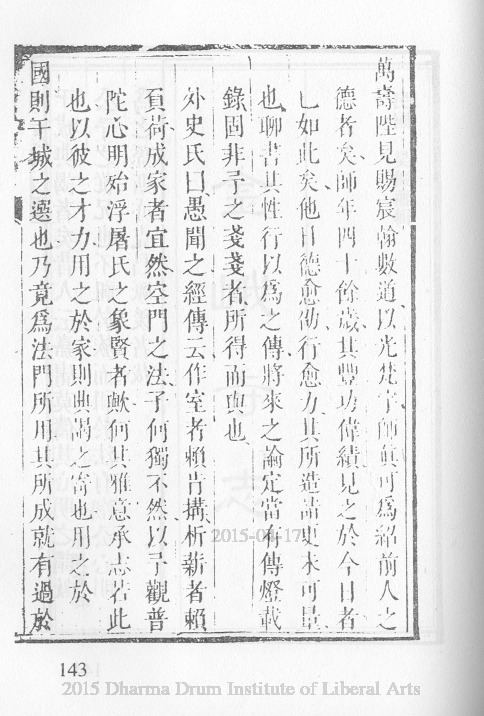 萬壽陛見賜宸翰數通以光梵宇師真可為紹前人之
德者矣師年四十餘歲其豐功偉績見之於今日者
已如此矣他日德愈劭行愈力其所造詣更未可量
也聊書其性行以為之傳將來之論定當有傳燈載
錄固非予之戔戔者所得而與也
外史氏曰愚聞之經傳云作室者賴肯搆析薪者賴
負荷成家者宜然空門之法子何獨不然以予觀普
陀心明殆浮屠氏之象賢者歟何其雅意承志若此
也以彼之才力用之於家則典謁之當也用之於
國則干城之選也乃竟為法門所用其所成就有過於
143
2015 Dharma Drum Institute of Liberal Arts